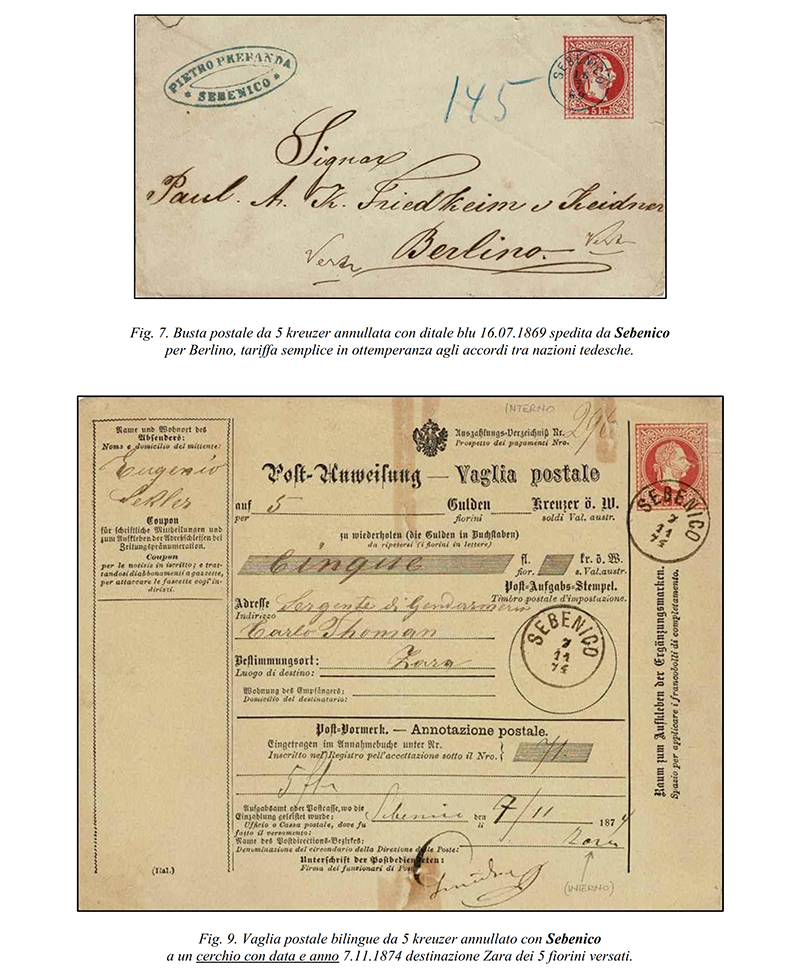 PIETRO PREPANDA
SEBENICO
145
SEBENICO
5 kr.
Signor
Paul. A. K. Friedheim v Keidner
Berlino.
Fig. 7. Busta postale da 5 kreuzer annullata con ditale blu 16.07.1869 spedita da Sebenico
per Berlino, tariffa semplice in ottemperanza agli accordi tra nazioni tedesche.
INTERNO
Name und Wohnort des
Absenders:
Nome e domicilio del mittente:
Eugenio
Coupon
für schriftliche Mittheilungen und
zum Aufkleben der Adreßschleifen bei
Zeitungspränumeration.
Coupon
per le notizie in iscritto; e trat-
tandosi di abbonamenti a gazzette,
per attaccare le fascette cogl'in-
dirizzi.
(Ital.)
Auszahlungs-Verzeichniß Nr.
Prospetto dei pagamenti Nro.
Post-Anweisung — Vaglia postale
auf 5 Gulden Kreuzer ö. W.
per fiorini soldi Val. austr.
zu wiederholen (die Gulden in Buchstaben)
da ripetersi (i fiorini in lettere)
Cinque fl. kr. ö. W.
fior. s. Val. austr.
Post-Aufgabs-Stempel.
Timbro postale d'impostazione.
Adresse Sergente di Gendarmeria
Indirizzo
Carlo Thoman
SEBENICO
7
11
74
Bestimmungsort: Zara
Luogo di destino:
Wohnung des Empfängers:
Domicilio del destinatario:
Post-Vormerk. — Annotazione postale.
Eingetragen im Annahmebuche unter Nr.
Inscritto nel Registro pell'accettazione sotto il Nro. 71.
Aufgabsamt oder Postcasse, wo die
Einzahlung geleistet wurde:
Ufficio o Cassa postale, dove fu
fatto il versamento:
Sebenico den
li 7/11 1874
Name des Postdirections-Bezirkes:
Denominazione del circondario della Direzione delle Poste: Zara
Unterschrift der Postbediensteten:
Firma dei funzionari di
(INTERNO)
SEBENICO
7
11
74
Raum zum Aufkleben der Ergänzungsmarken.
Spazio per applicare i francobolli di completamento.
Fig. 9. Vaglia postale bilingue da 5 kreuzer annullato con Sebenico
a un cerchio con data e anno 7.11.1874 destinazione Zara dei 5 fiorini versati.